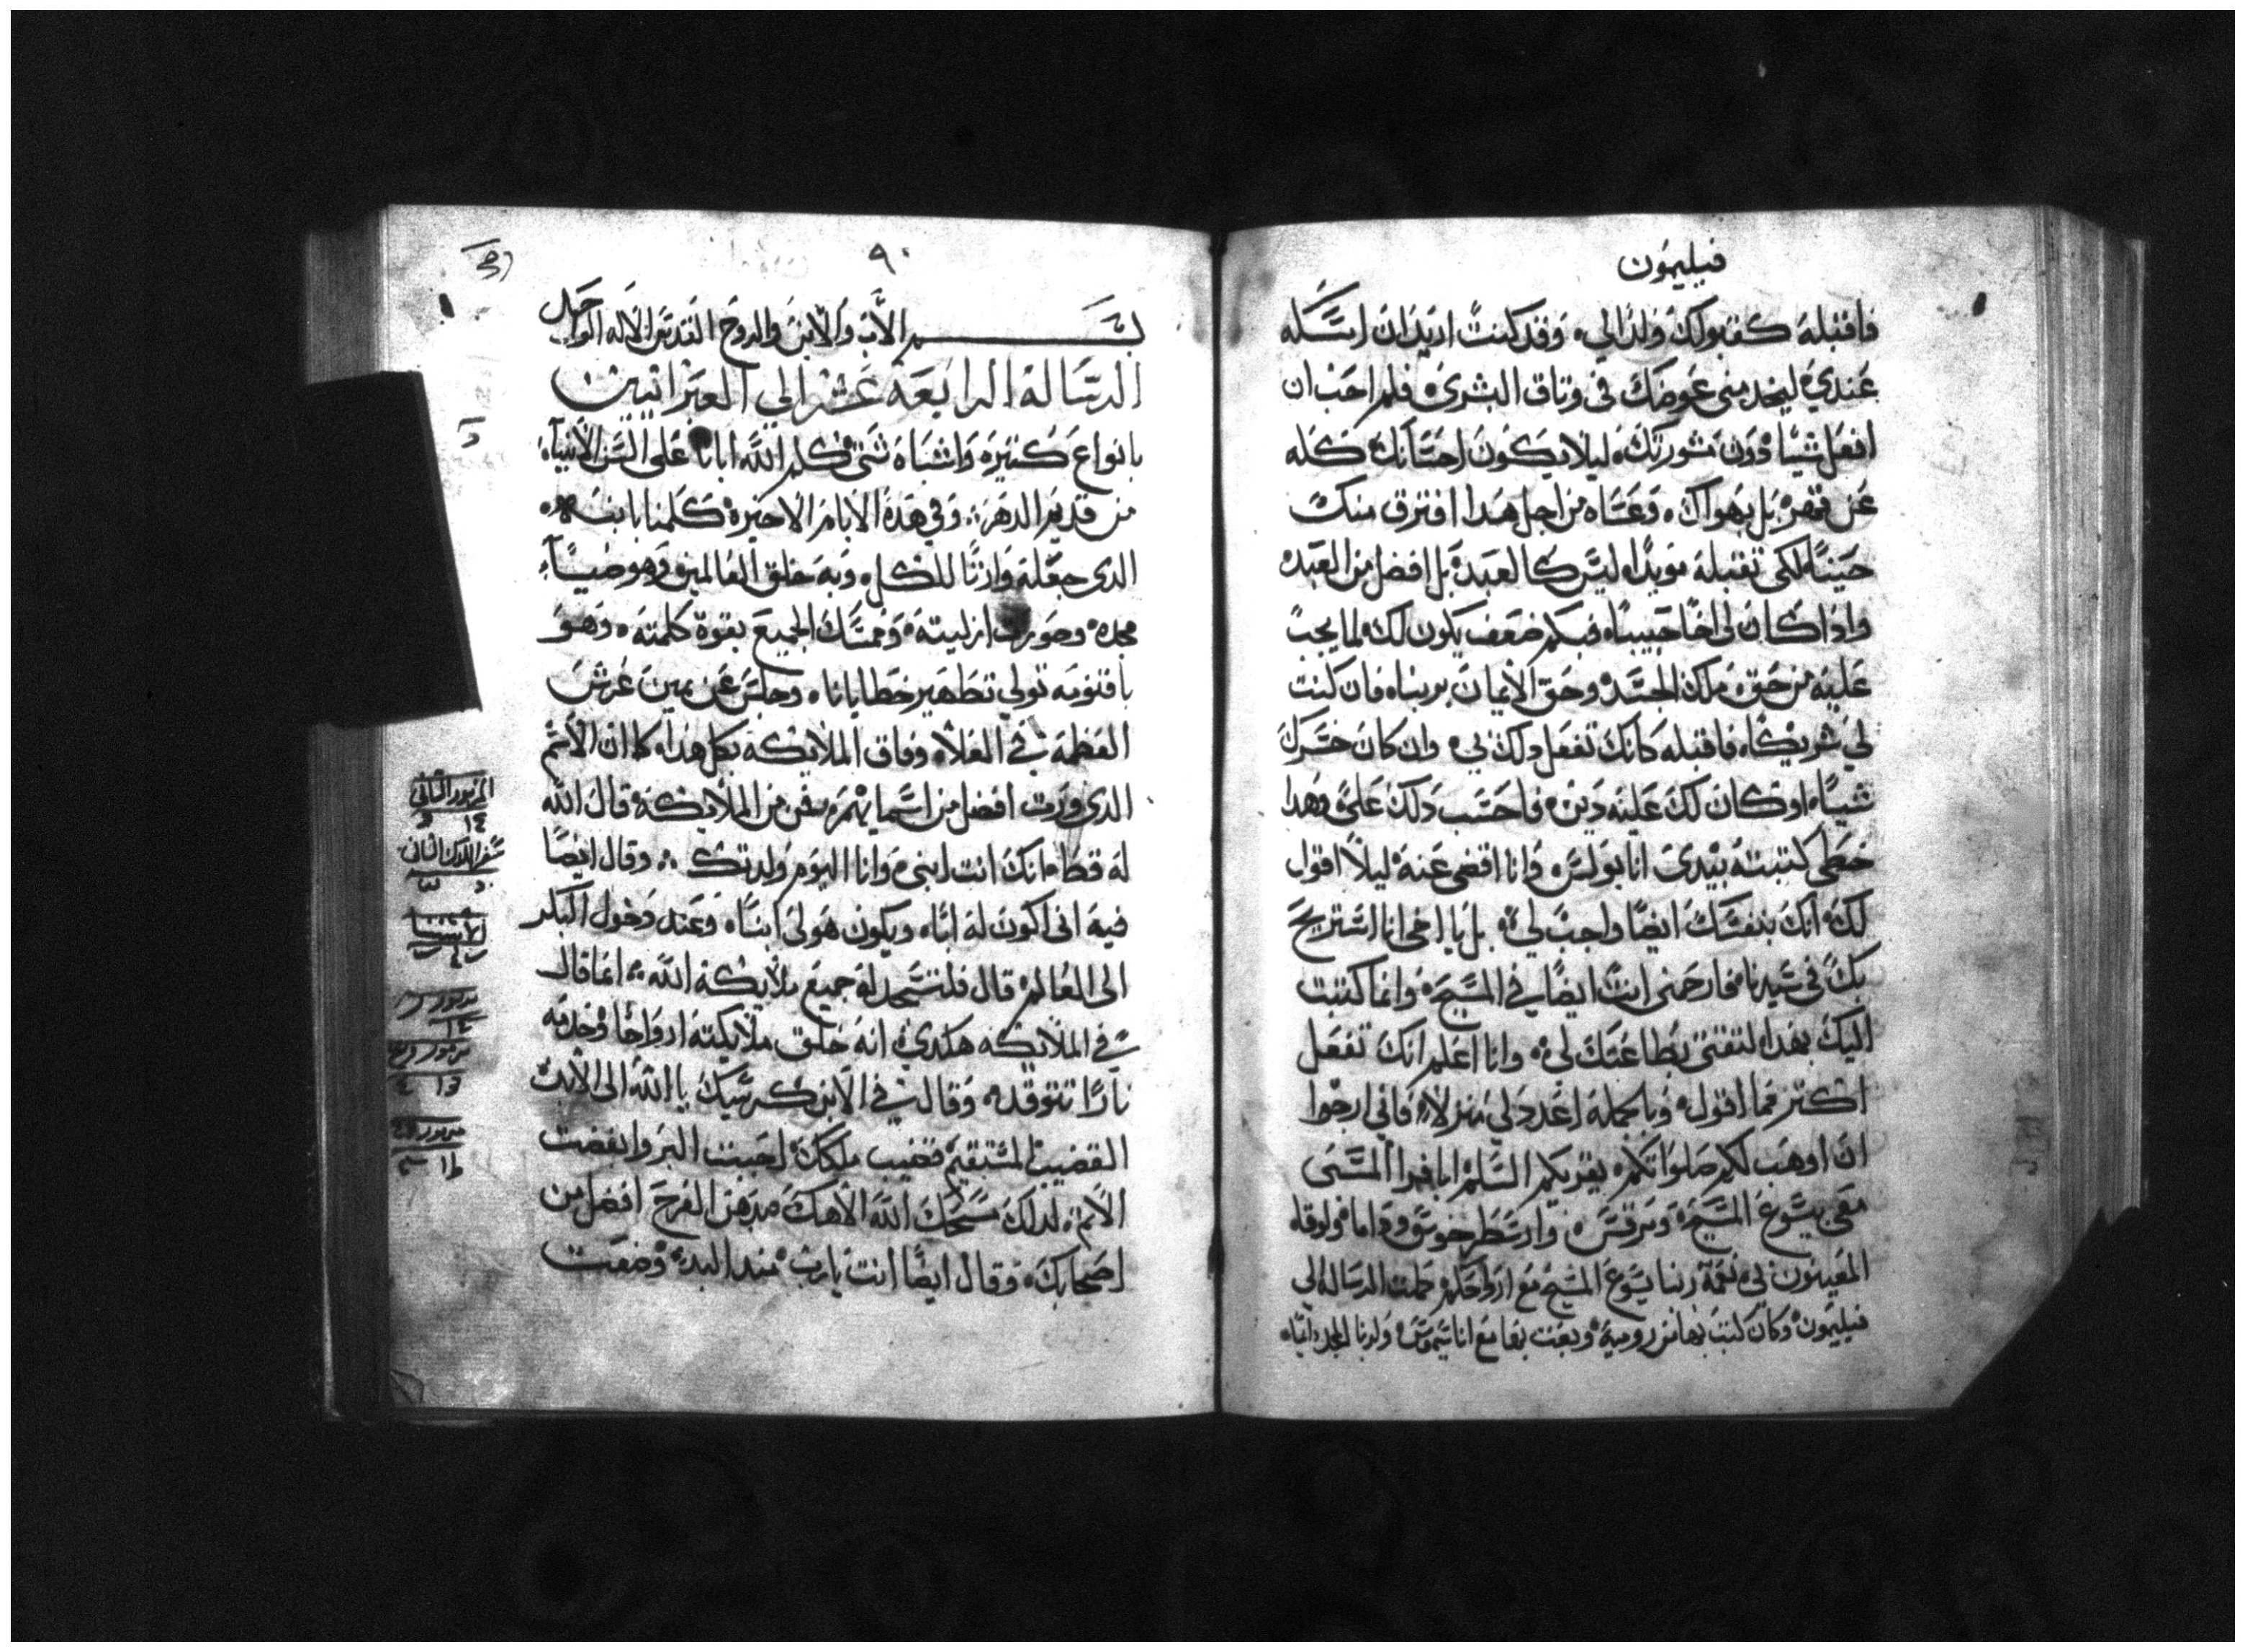 فيليمون
فاقبله كقبولك ولدالي، وقد كنت اريد ان امسكه
عندي ليخدمني عوضك في وتاق البشرى فلم احب ان
افعل شياء دون مشورتك، ليلا يكون احسانك كله
عن قهر بل بهواك، وعساه من اجل هدا افترق منك
حينًا لكى تقبله موبدا، ليس كالعبد بل افضل من العبد
وادا كان لى اخًا حبيبا، فبكم ضعف يكون لك لما يجب
عليه من حق ملك الجسد وحق الايمان بربنا، فان كنت
لي شريكا، فاقبله كانك تفعل دلك لي، وان كان خسرك
شياء اوكان لك عليه دين، فاحتسب دلك على وهدا
خطى كتبته بيدى انا بولس، وانا اقضى عنه ليلا اقول
لك، انك بنفسك ايضا واجب لي، بل يا اخى انا استريح
بك فى سيدنا، فارحمنى انت ايضا في المسيح، وانما كتبت
اليك بهدا، لتقتى بطاعتك لى، وانا اعلم انك تفعل
اكتر مما اقول، وبالجمله اعدد لي منزلا، فاني ارجوا
ان اوهب لكم صلواتكم، يقريكم السلم ابافرا المسبى
معى بيسوع المسيح، ومرقس، وارسطرخوس وداما ولوقا،
المعينون لى، نعمة ربنا يسوع المسيح مع ارواحكم، كملت الرساله الي
فيليمون، وكان كتب بها من روميه، وبعت بها مع اناسيموس، ولربنا المجد دايما،
٩٠
بسم الاب والابن والروح القدس الاله الواحد
الرسالة الرابعة عشر الي العبرانيين
بانواع كتيره واشباه شتى كلم الله ابانا على السن الانبياء
من قديم الدهر، وفي هده الايام الاخيرة كلمنا بابنه،
الدى جعله وارتا للكل، وبه خلق العالمين وهو ضياء
مجده وصورت ازليته، وممسك الجميع بقوة كلمته، وهو
باقنومه تولي تطهير خطايانا، وجلس عن يمين عرش
العظمه في العلا، وفاق الملايكه بكل هدا، كما ان الاسم
الدى ورت افضل من اسمايهم، فمن من الملايكه قال الله
له قط، انك انت ابنى وانا اليوم ولدتك، وقال ايضا
فيه انى اكون له ابا، ويكون هو لى ابنا، وعند دخول البكر
الى العالم، قال فلتسجد له جميع ملايكة الله، انما قال
في الملايكه هكدى، انه خلق ملايكته ارواحا وخدمه
نارا تتوقد، وقال في الابن كرسيك يا الله الى الابد
القضيب المستقيم قضيب ملكك، احببت البر وابغضت
الاتم، لدلك مسحك الله الاهك بدهن الفرح افضل من
اصحابك، وقال ايضا انت يارب مند البد، وضعت
المزمور التانى
سفر الملوك التانى